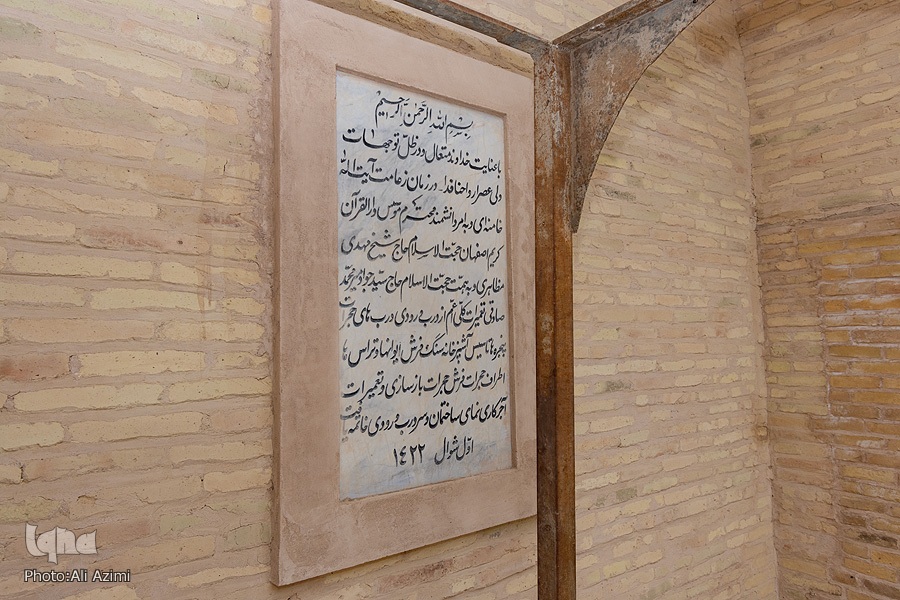 بسم الله الرحمن الرحیم
با عنایت خداوند متعال و در ظلّ توجهات
ولی عصر ارواحنا فداه در زمان زعامت آیت الله
خامنه ای و به امر دانشمند محترم موسس دارالقرآن
کریم اصفهان حجت الاسلام حاج شیخ مهدی
مظاهری و به همت حجت الاسلام حاج سیّد جواد میر محمّد
صادقی تعمیرات کلّی اعم از درب ورودی درب های حجرات
پنجره ها تاسیس آشپزخانه سنگ فرش ایوانها و تراس ها
اطراف حجرات فرش حجرات بازسازی و تعمیرات
آجرکاری نمای ساختمان و سر درب ورودی خاتمه یافت
اوّل شوال ۱۴۲۲
Iqna
Photo:Ali Azimi